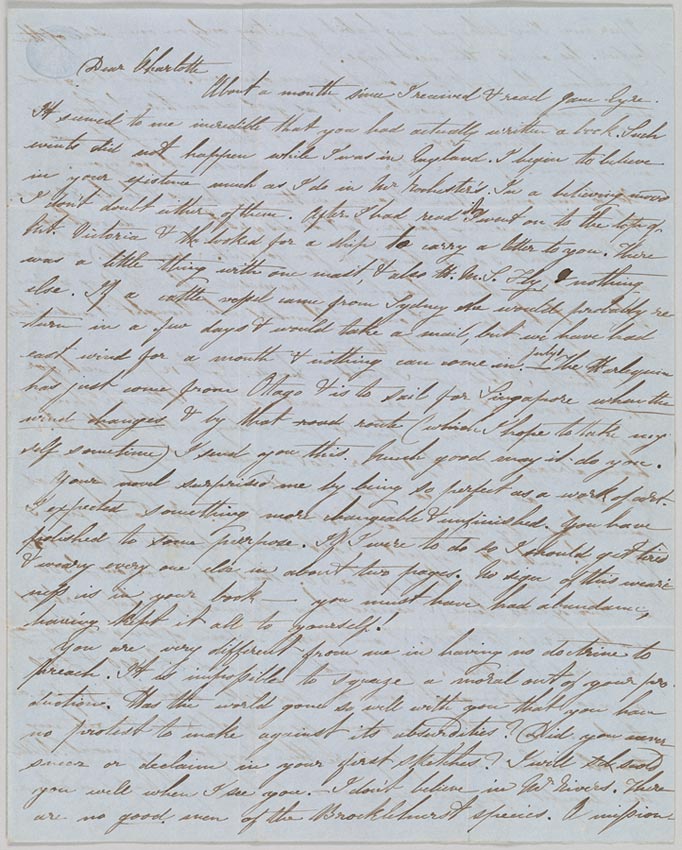 Dear Charlotte
About a month since I received & read Jane Eyre.
It seemed to me incredible that you had actually written a book. Such
events did not happen while I was in England. I begin to believe
in your existence much as I do in Mr Rochester's. In a believing mood
I don't doubt either of them. After I had read it I went on to the top of
Mt. Victoria & looked for a ship to carry a letter to you. There
was a little thing with one mast, & also H.M.S. Fly & nothing
else. If a cattle vessel came from Sydney she would probably re
turn in a few days & would take a mail, but we have had
east wind for a month & nothing can come in.
July 1
– The Harlequin
has just come from Otago & is to sail for Singapore when the
wind changes & by that route (which I hope to take my
self sometime) I send you this. Much good may it do you.
Your novel surprised me by being so perfect as a work of art.
I expected something more changeable & unfinished. You have
polished to some purpose. If I were to do so I should get tired
& weary every one else in about two pages. No sign of this weari
ness is in your book – you must have had abundance,
having kept it all to yourself!
You are very different from me in having no doctrine to
preach. It is impossible to squeeze a moral out of your pro
duction. Has the world gone so well with you that you have
no protest to make against its absurdities? Did you never
sneer or declaim in your first sketches? I will scold
you well when I see you. – I don't believe in Mr Rivers. There
are no good men of the Brocklehurst species. A mission